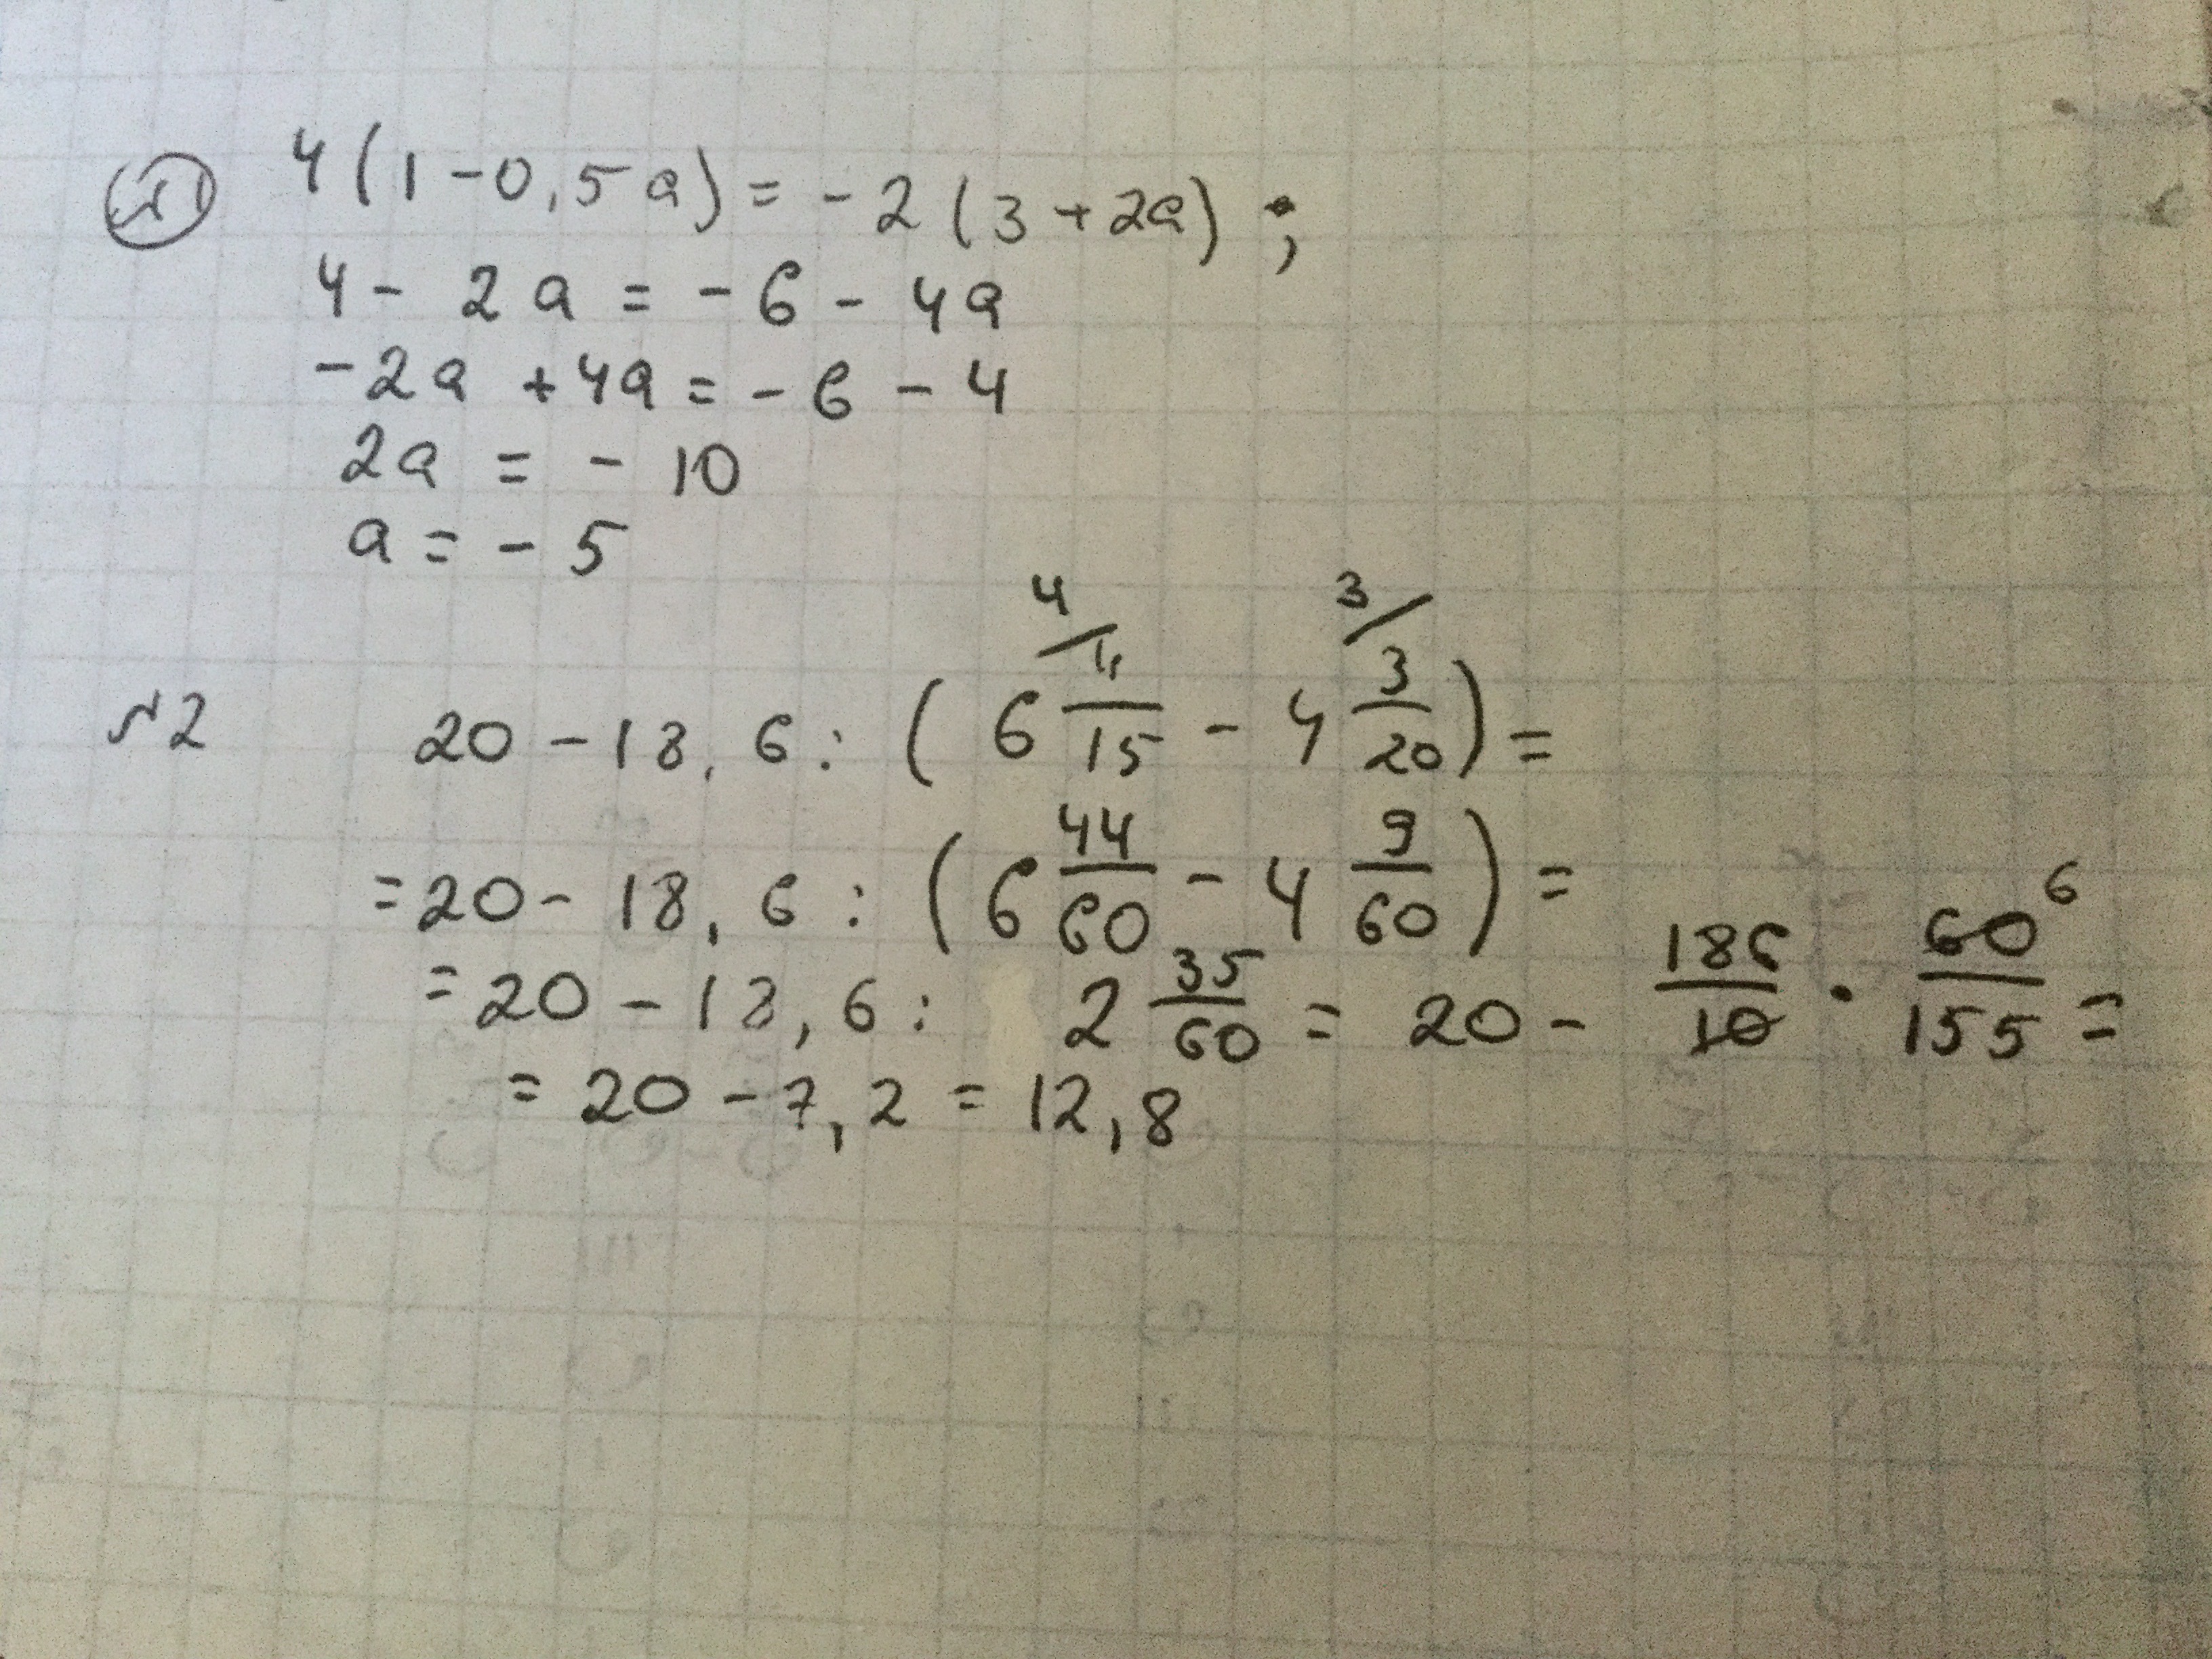 №1 4(1-0,5a) = -2(3+2a);
4 - 2a = -6 - 4a
-2a +4a = -6 - 4
2a = -10
a = -5
4/ 3/
№2 20-18,6:(6 11/15 - 4 3/20)=
=20-18,6:(6 44/60 - 4 9/60)=
=20-18,6: 2 35/60 = 20 - 186/10 · 60/155 = 6
= 20 - 7,2 = 12,8